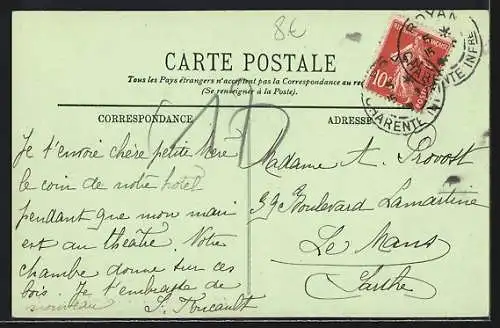 8€
CARTE POSTALE
Tous les Pays étrangers n'acceptent pas la Correspondance au
(Se renseigner à la Poste).
CORRESPONDANCE
ADRESSE
ROYAN
CHARENTE INFRE
10
Je t'envoie chère petite Mère
le coin de notre hotel
pendant que mon mari
est au théâtre. Notre
chambre donne sur ces
bois. Je t'embrasse de
nouveau S. Foucault
Madame A. Provost
59 Boulevard Lamartine
Le Mans
Sarthe